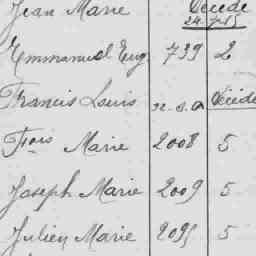 Jean Marie Décédé
24-7-15
Emmanuel Eug. 739 2
Francis Louis Décédé
Fois Marie 2008 5
Joseph Marie 2009 5
Julien Marie 2095 5